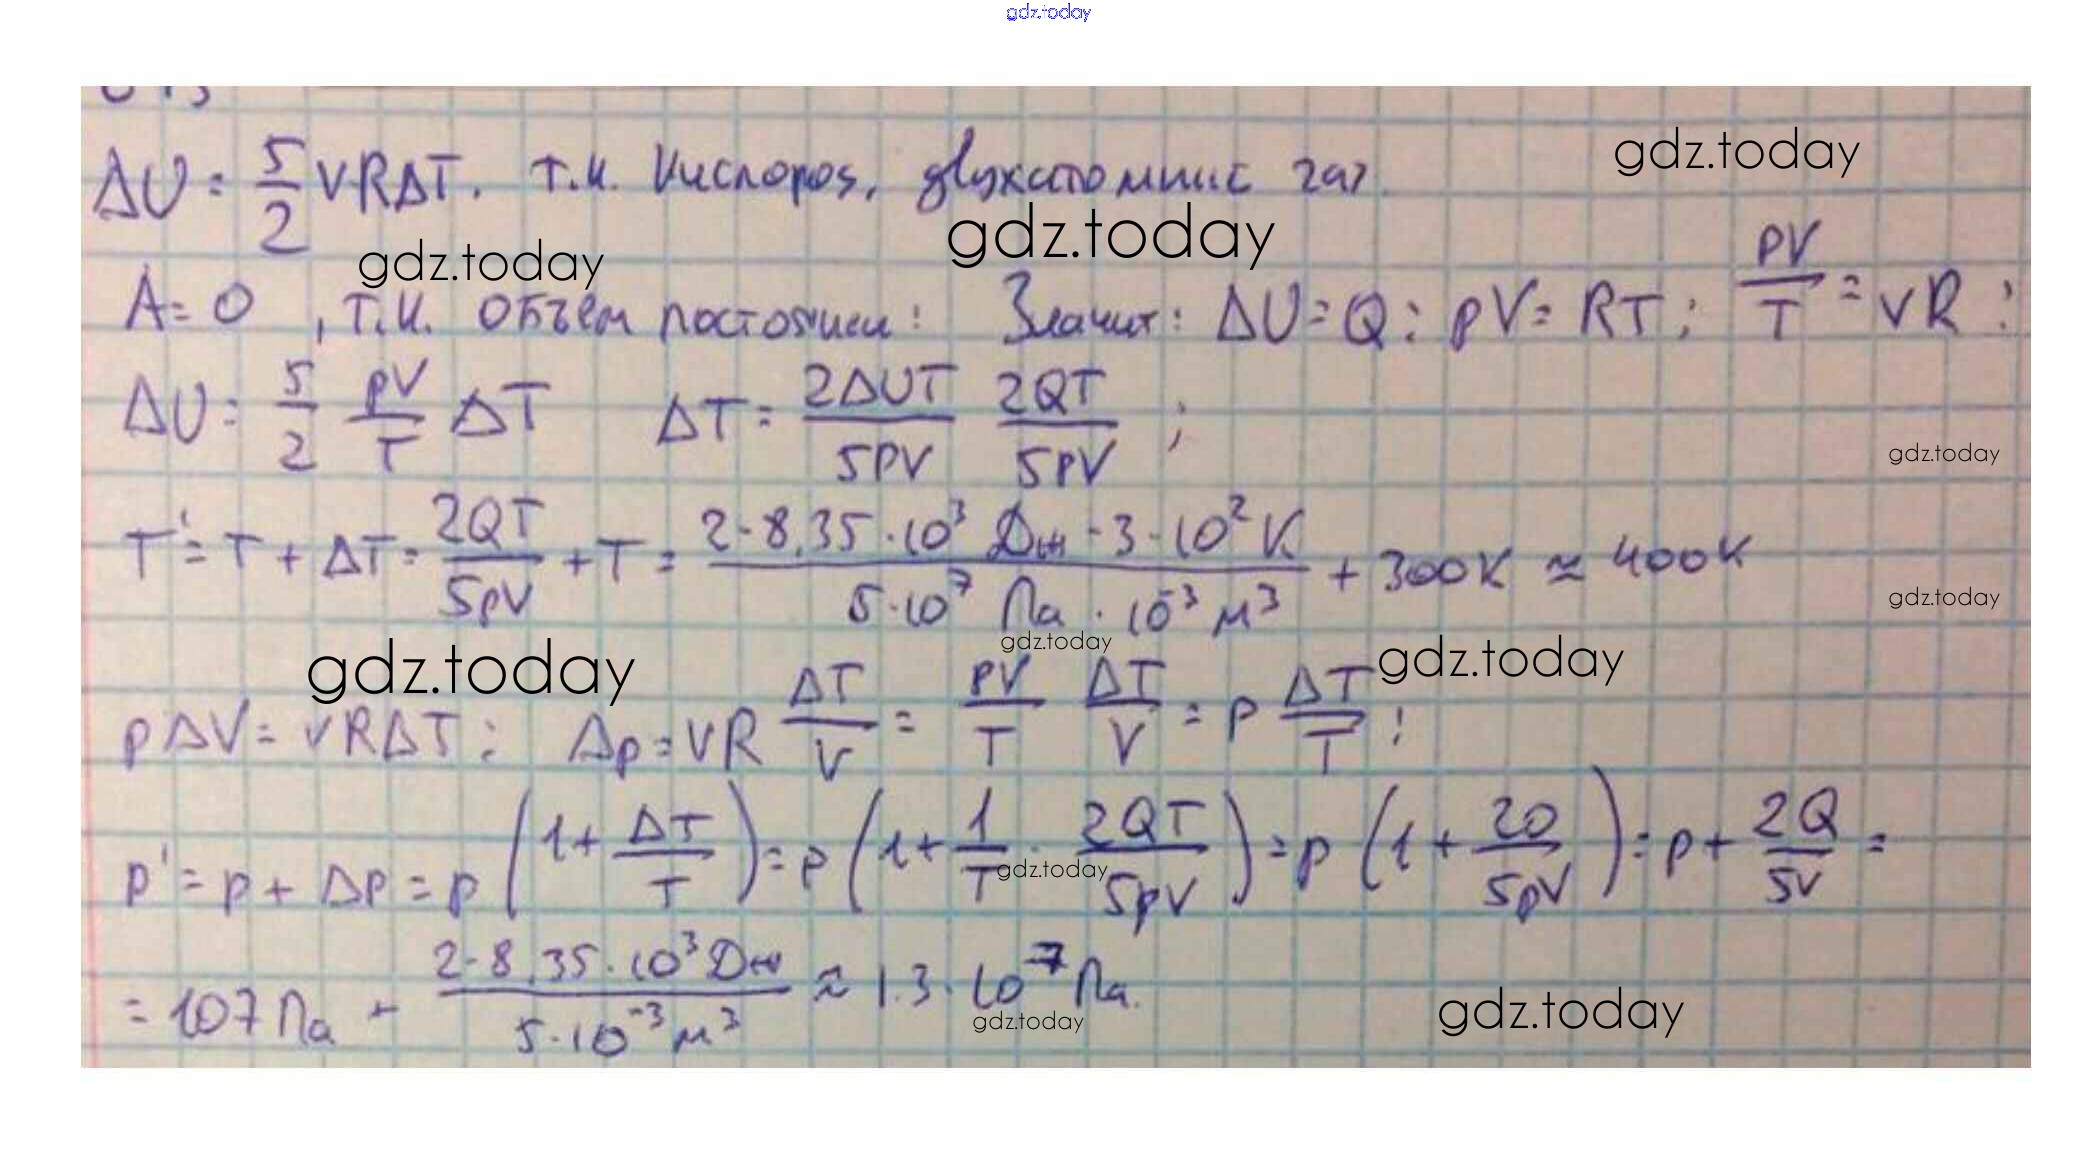 gdz.today
ΔU = 5/2 νRΔT. т.к. Кислород, двухатомный газ. gdz.today
gdz.today gdz.today
A = 0, т.к. объём постоянен: Значит: ΔU = Q: pV = RT; pV/T = νR:
ΔU = 5/2 pV/T ΔT ΔT = 2ΔUT/5PV 2QT/5PV ;
gdz.today
T' = T + ΔT = 2QT/5pV + T = 2·8,35·10³ Дж·3·10² К / 5·10⁷ Па·10⁻³ м³ + 300К ≈ 400К
gdz.today
gdz.today gdz.today gdz.today
pΔV = νRΔT; Δp = νR ΔT/V = pV/T ΔT/V = p ΔT/T ;
p' = p + Δp = p(1 + ΔT/T) = p(1 + 1/T · 2QT/5pV) = p(1 + 2Q/5pV) = p + 2Q/5V =
gdz.today
= 107 Па + 2·8,35·10³ Дж / 5·10⁻³ м³ ≈ 1.3·10⁷ Па.
gdz.today gdz.today